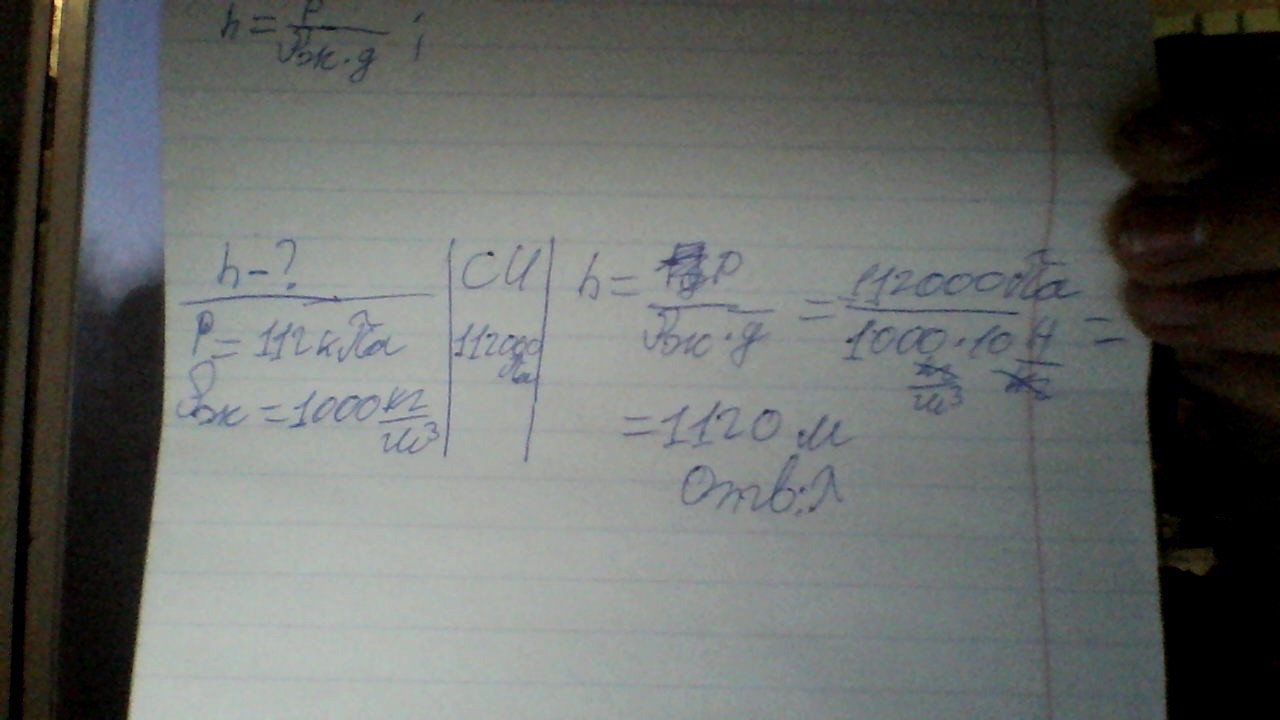 h = P / ρж·g ;
h – ?
P = 112 кПа
ρж = 1000 кг/м³
СИ
112000 Па
h = P / ρж·g = 112000 Па / 1000 кг/м³ · 10 Н/кг =
= 1120 м
Отв: